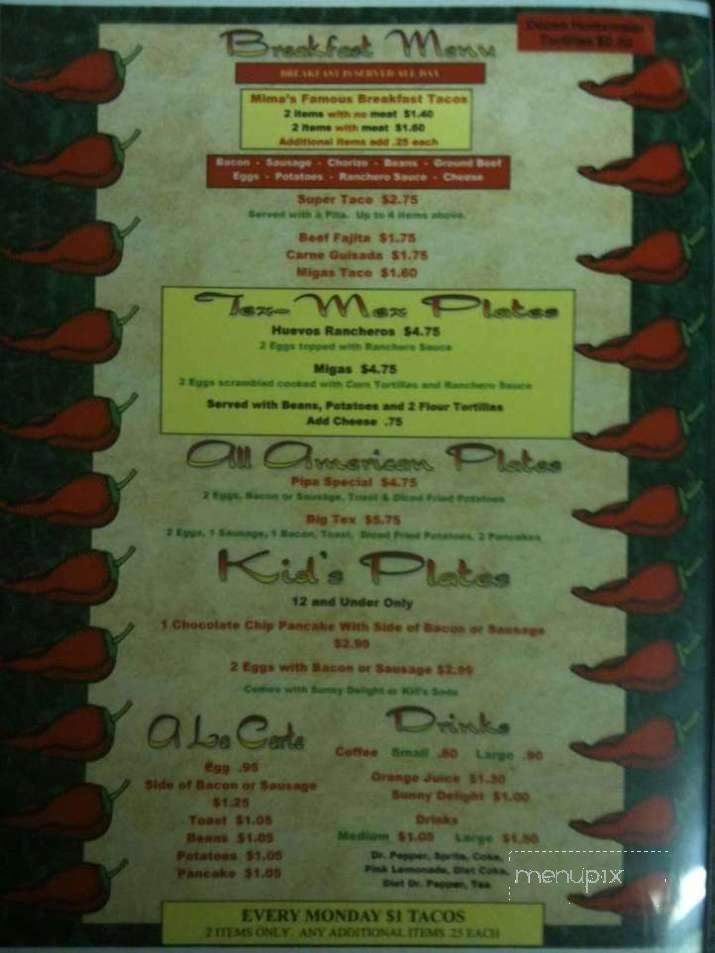 Breakfast Menu
Dozen Homemade
Tortillas
BREAKFAST IS SERVED ALL DAY
Mima's Famous Breakfast Tacos
2 items with no meat $1.40
2 items with meat $1.60
Additional items add .25 each
Bacon - Sausage - Chorizo - Beans - Ground Beef
Eggs - Potatoes - Ranchero Sauce - Cheese
Super Taco $2.75
Served with a Pita. Up to 4 items above.
Beef Fajita $1.75
Carne Guisada $1.75
Migas Taco $1.60
Tex-Mex Plates
Huevos Rancheros $4.75
2 Eggs topped with Ranchero Sauce
Migas $4.75
2 Eggs scrambled cooked with Corn Tortillas and Ranchero Sauce
Served with Beans, Potatoes and 2 Flour Tortillas
Add Cheese .75
All American Plates
Pipa Special $4.75
2 Eggs, Bacon or Sausage, Toast & Diced Fried Potatoes
Big Tex $5.75
2 Eggs, 1 Sausage, 1 Bacon, Toast, Diced Fried Potatoes, 2 Pancakes
Kid's Plates
12 and Under Only
1 Chocolate Chip Pancake With Side of Bacon or Sausage
$2.99
2 Eggs with Bacon or Sausage $2.99
Comes with Sunny Delight or Kid's Soda
A La Carte
Egg .95
Side of Bacon or Sausage
$1.25
Toast $1.05
Beans $1.05
Potatoes $1.05
Pancake $1.05
Drinks
Coffee Small .80 Large .90
Orange Juice $1.30
Sunny Delight $1.00
Drinks
Medium $1.05 Large $1.50
Dr. Pepper, Sprite, Coke,
Pink Lemonade, Diet Coke,
Diet Dr. Pepper, Tea
menupix
EVERY MONDAY $1 TACOS
2 ITEMS ONLY. ANY ADDITIONAL ITEMS .25 EACH